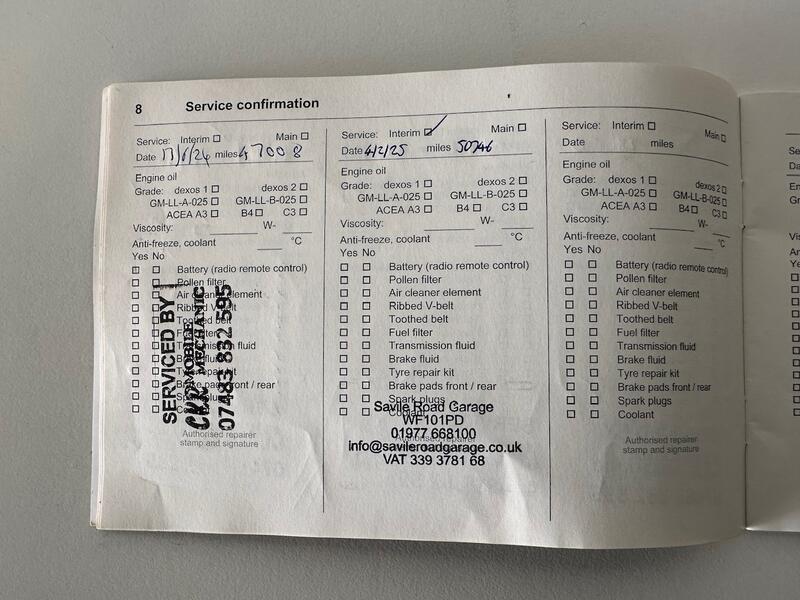 8 Service confirmation
Service: Interim Main
Date 17/6/24 miles 47008
Engine oil
Grade: dexos 1 dexos 2
GM-LL-A-025 GM-LL-B-025
ACEA A3 B4 C3
Viscosity: W-
Anti-freeze, coolant °C
Yes No
Battery (radio remote control)
Pollen filter
Air cleaner element
Ribbed V-belt
Toothed belt
Fuel filter
Transmission fluid
Brake fluid
Tyre repair kit
Brake pads front / rear
Spark plugs
Coolant
Authorised repairer
stamp and signature
SERVICED BY
MOBILE
MECHANIC
07483 832 595
Service: Interim ✓ Main
Date 4/2/25 miles 50746
Engine oil
Grade: dexos 1 dexos 2
GM-LL-A-025 GM-LL-B-025
ACEA A3 B4 C3
Viscosity: W-
Anti-freeze, coolant °C
Yes No
Battery (radio remote control)
Pollen filter
Air cleaner element
Ribbed V-belt
Toothed belt
Fuel filter
Transmission fluid
Brake fluid
Tyre repair kit
Brake pads front / rear
Spark plugs
Coolant
Savile Road Garage
WF101PD
01977 668100
Authorised repairer
info@savileroadgarage.co.uk
stamp and signature
VAT 339 3781 68
Service: Interim Main
Date miles
Engine oil
Grade: dexos 1 dexos 2
GM-LL-A-025 GM-LL-B-025
ACEA A3 B4 C3
Viscosity: W-
Anti-freeze, coolant °C
Yes No
Battery (radio remote control)
Pollen filter
Air cleaner element
Ribbed V-belt
Toothed belt
Fuel filter
Transmission fluid
Brake fluid
Tyre repair kit
Brake pads front / rear
Spark plugs
Coolant
Authorised repairer
stamp and signature